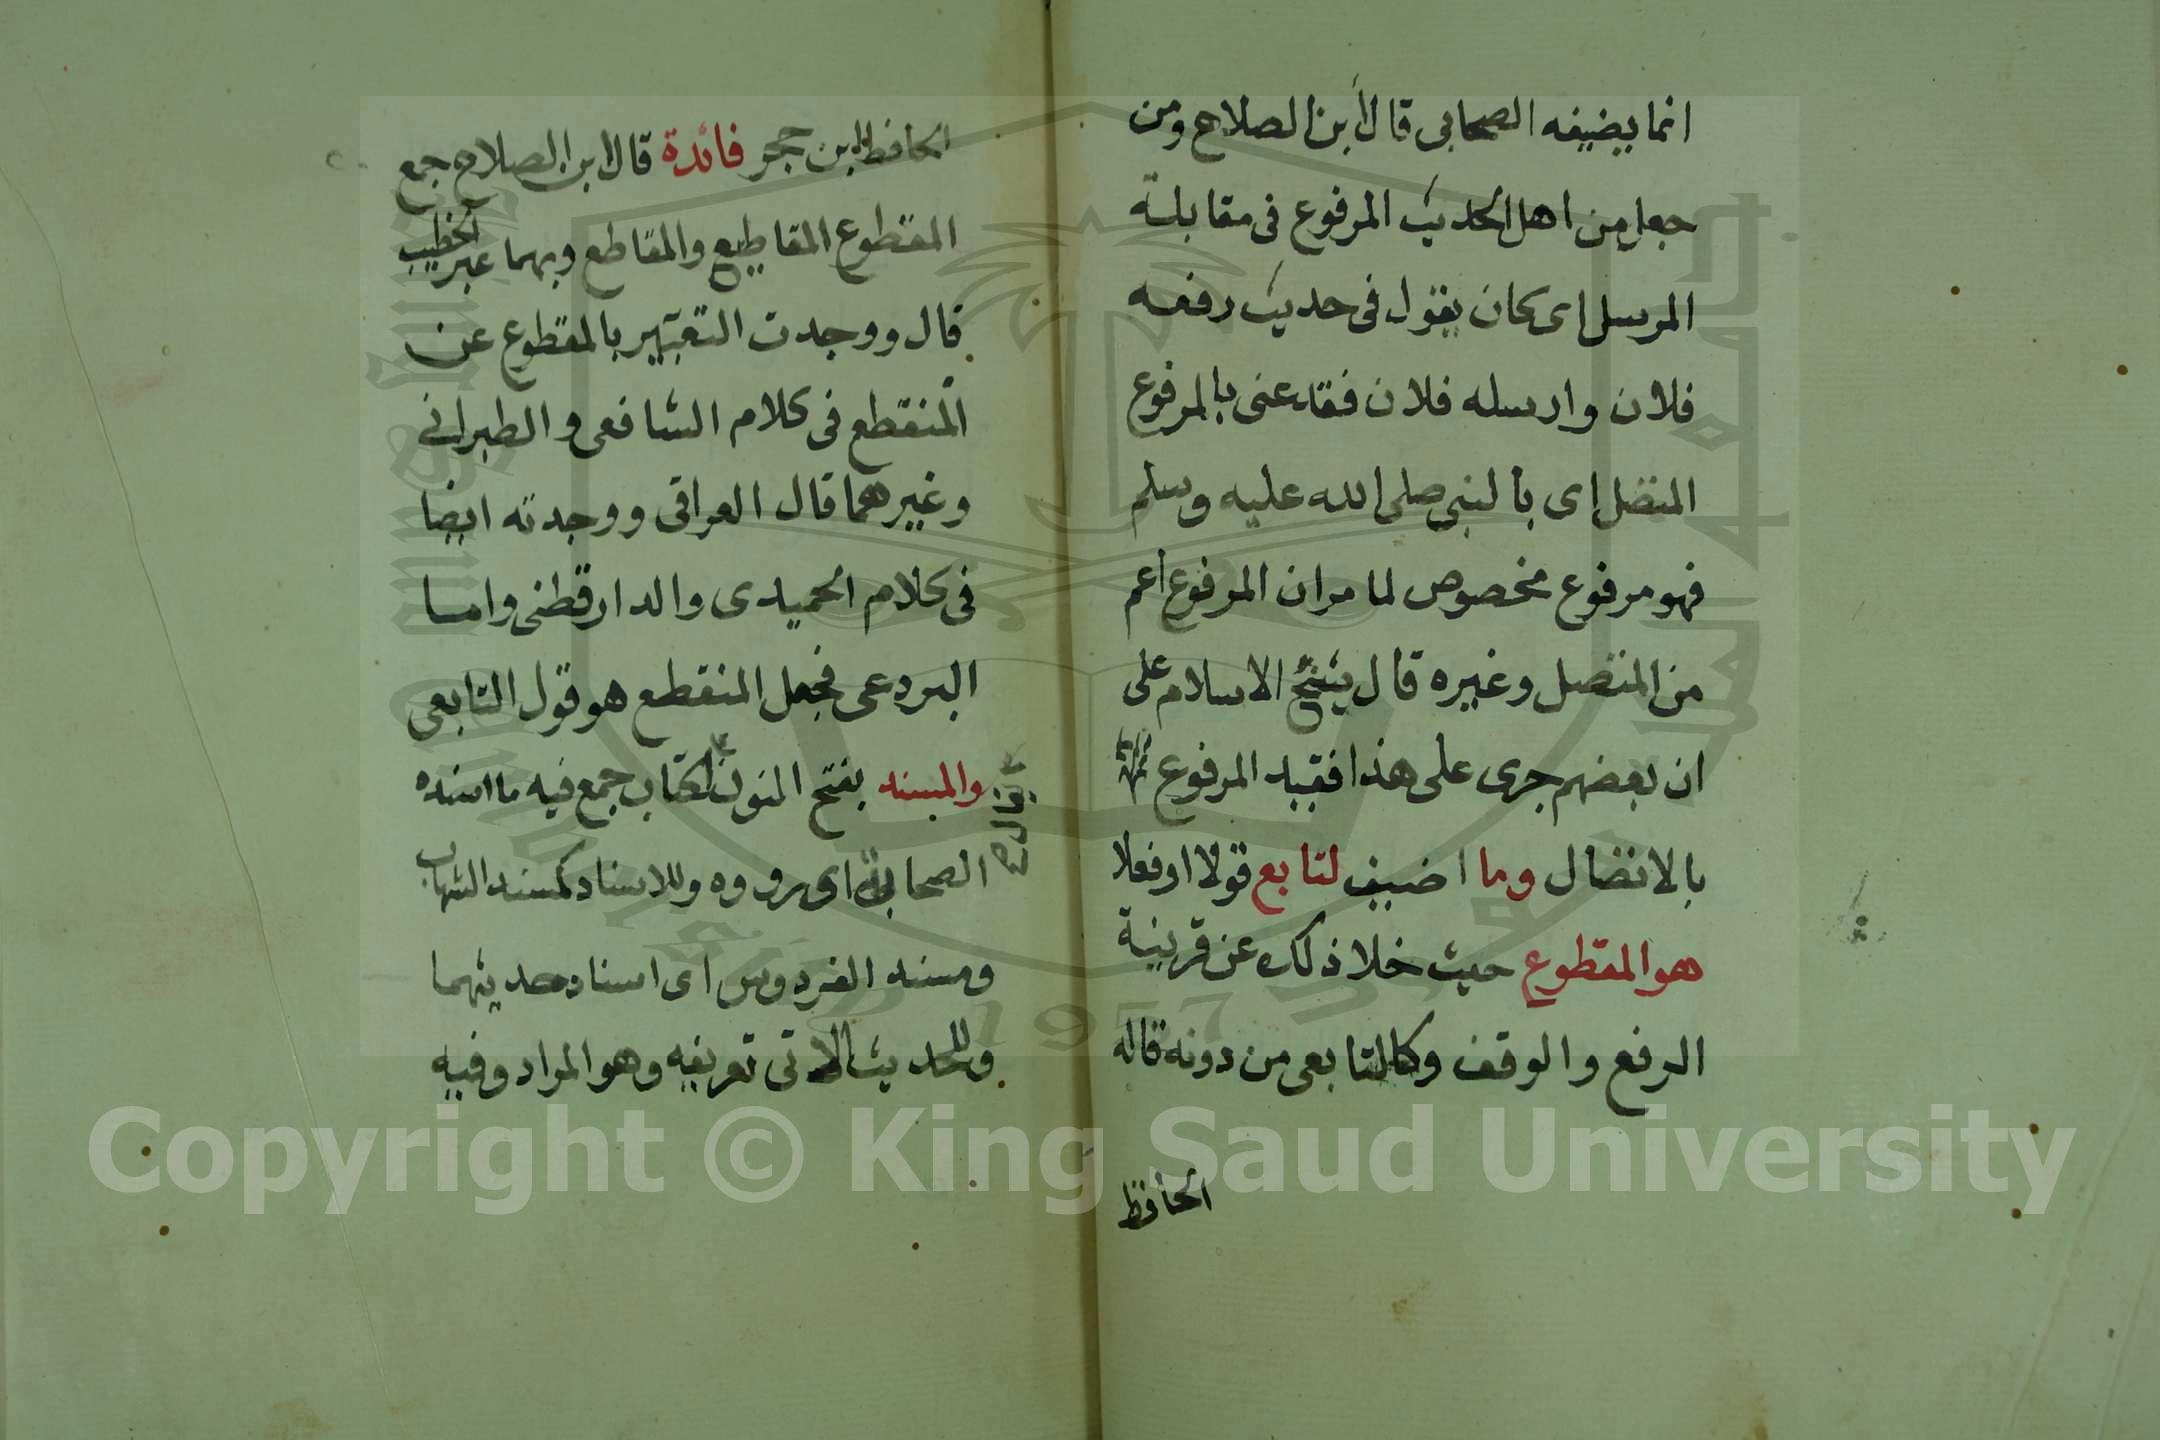 انما يضيفه الصحابى قال ابن الصلاح ومن
جعل من اهل الحديث المرفوع فى مقابلة
المرسل اى كان يقول فى حديث رفعه
فلان وارسله فلان فقد عنى بالمرفوع
المتصل اى بالنبى صلى الله عليه وسلم
فهو مرفوع مخصوص لما مر ان المرفوع اعم
من المتصل وغيره قال شيخ الاسلام على
ان بعضهم جرى على هذا فقيد المرفوع
بالاتصال وما اضيف لتابع قولا او فعلا
هو المقطوع حيث خلا ذلك عن قرينة
الرفع والوقف وكالتابعى من دونه قاله
الحافظ
الحافظ ابن حجر فائدة قال ابن الصلاح جمع
المقطوع المقاطيع والمقاطع وبهما عبر الخطيب
قال ووجدت التعبير بالمقطوع عن
المنقطع فى كلام الشافعى والطبرانى
وغيرهما قال العراقى ووجدته ايضا
فى كلام الحميدى والدارقطنى واما
البردعى فجعل المنقطع هو قول التابعى
والمسند بفتح النون لكتاب جمع فيه ما اسنده
الصحابة اى رووه وللاسناد كمسند الشهاب
ومسند الفردوس اى اسناد حديثهما
وللحديث الاتى تعريفه وهو المراد وفيه
1957
Copyright © King Saud University